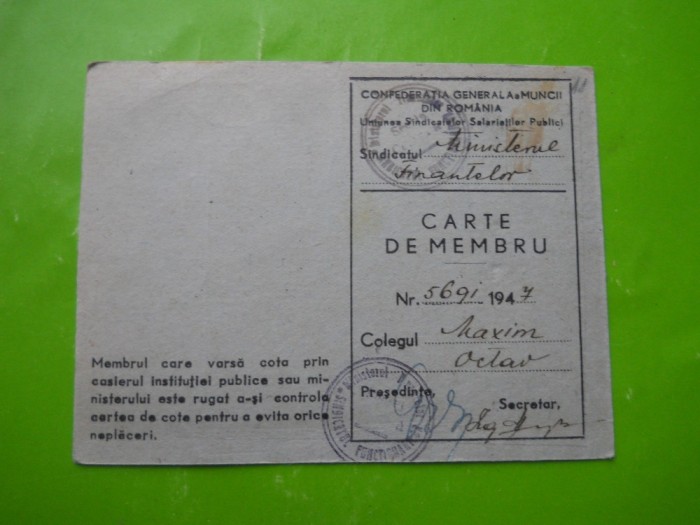 Membrul care varsă cota prin
casierul instituției publice sau mi-
nisterului este rugat a-și controla
cartea de cote pentru a evita orice
neplăceri.
CONFEDERAȚIA GENERALA a MUNCII
DIN ROMÂNIA
Uniunea Sindicatelor Salariaților Publici
Sindicatul Ministerul
Finantelor
CARTE
DE MEMBRU
Nr. 5691 1947
Colegul Maxim
Octav
Președinte, Secretar,